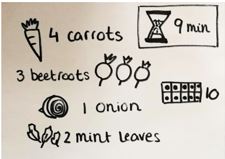 4 carrots
9 min
3 beetroots
1 onion
10
2 mint leaves